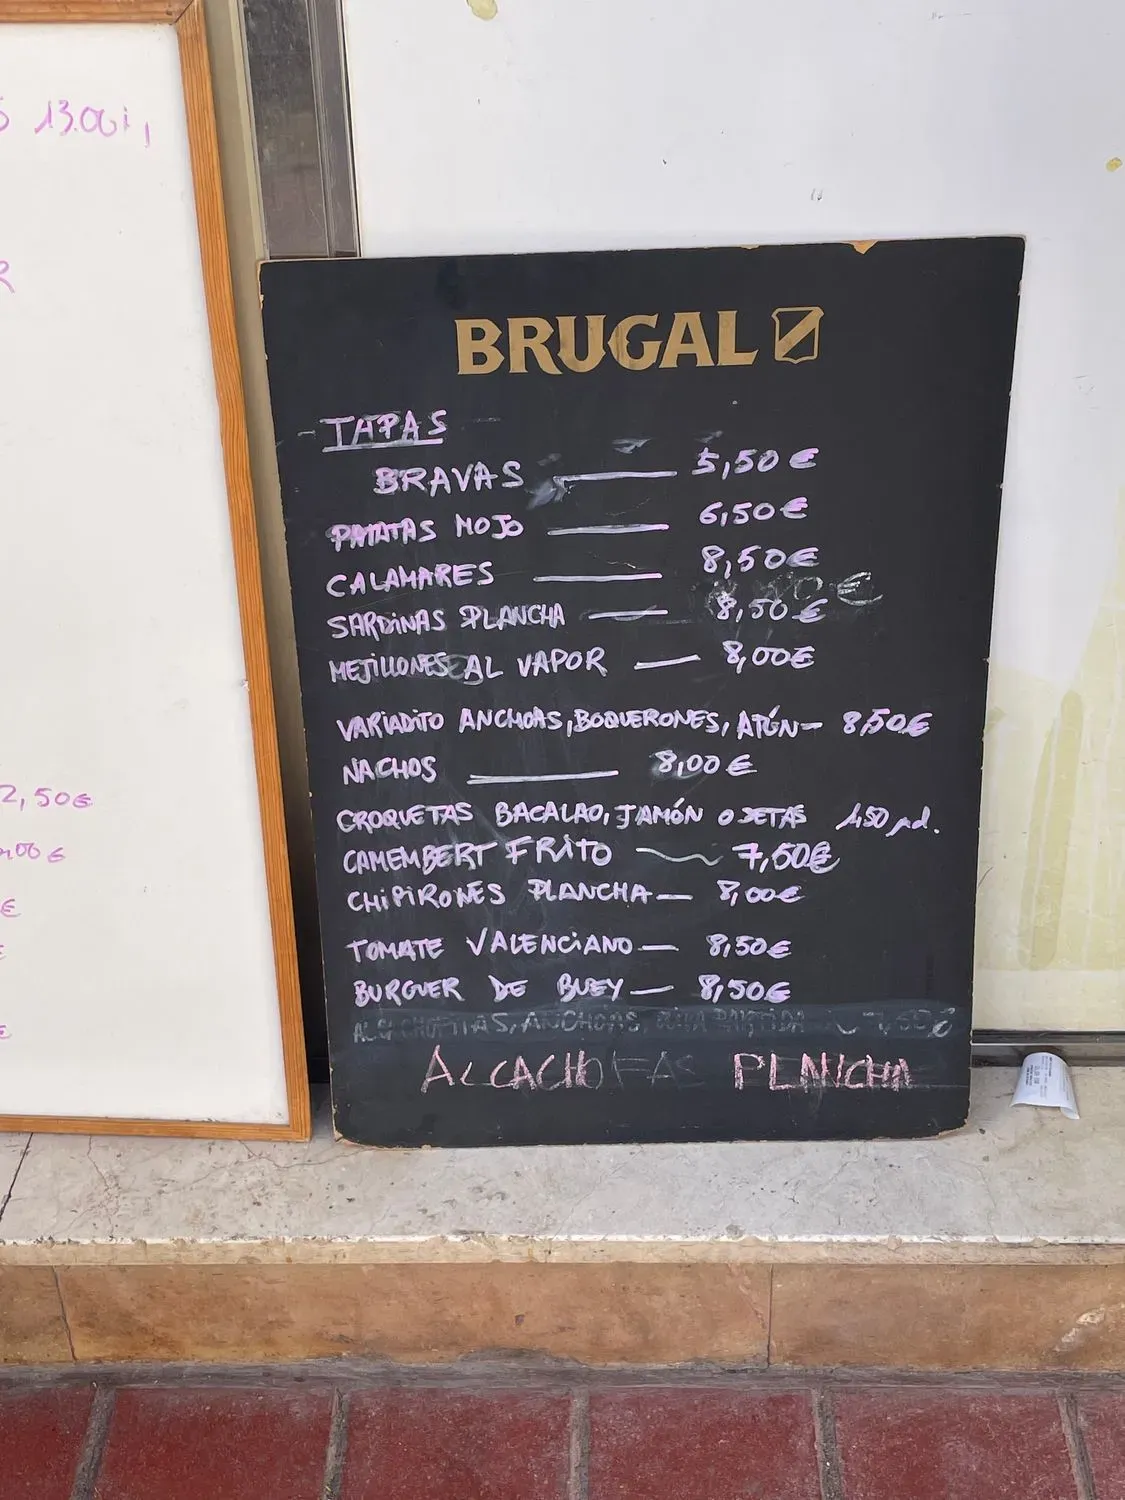 13.00
R
2,50€
00€
€
€
€
BRUGAL
TAPAS
BRAVAS 5,50€
PATATAS MOJO 6,50€
CALAMARES 8,50€
SARDINAS PLANCHA 8,50€
MEJILLONES AL VAPOR 8,00€
VARIADITO ANCHOAS, BOQUERONES, ATÚN 8,50€
NACHOS 8,00€
CROQUETAS BACALAO, JAMÓN O SETAS 1,50 ud.
CAMEMBERT FRITO 7,50€
CHIPIRONES PLANCHA 8,00€
TOMATE VALENCIANO 8,50€
BURGUER DE BUEY 8,50€
ANCHOAS, 7,50€
ALCACHOFAS PLANCHA